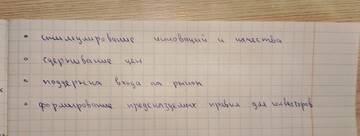 • стимулирование инноваций и качества
• сдерживание цен
• поддержка входа на рынок
• формирование предсказуемых правил для инвесторов